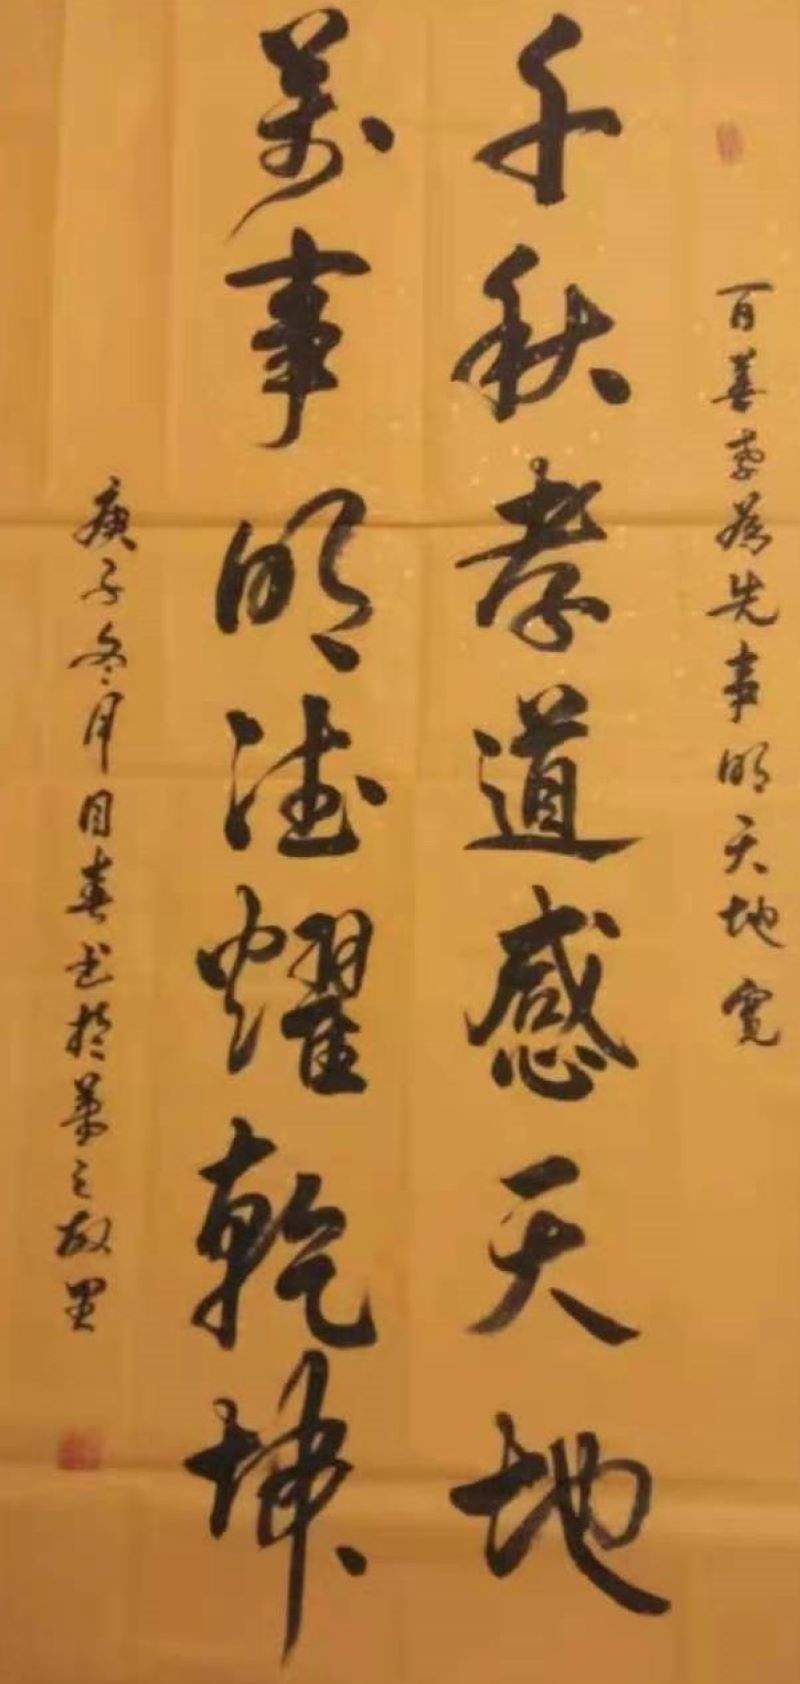 百善孝为先事明天地宽
千秋孝道感天地
萬事明德耀乾坤
庚子冬月目喜书於羲之故里